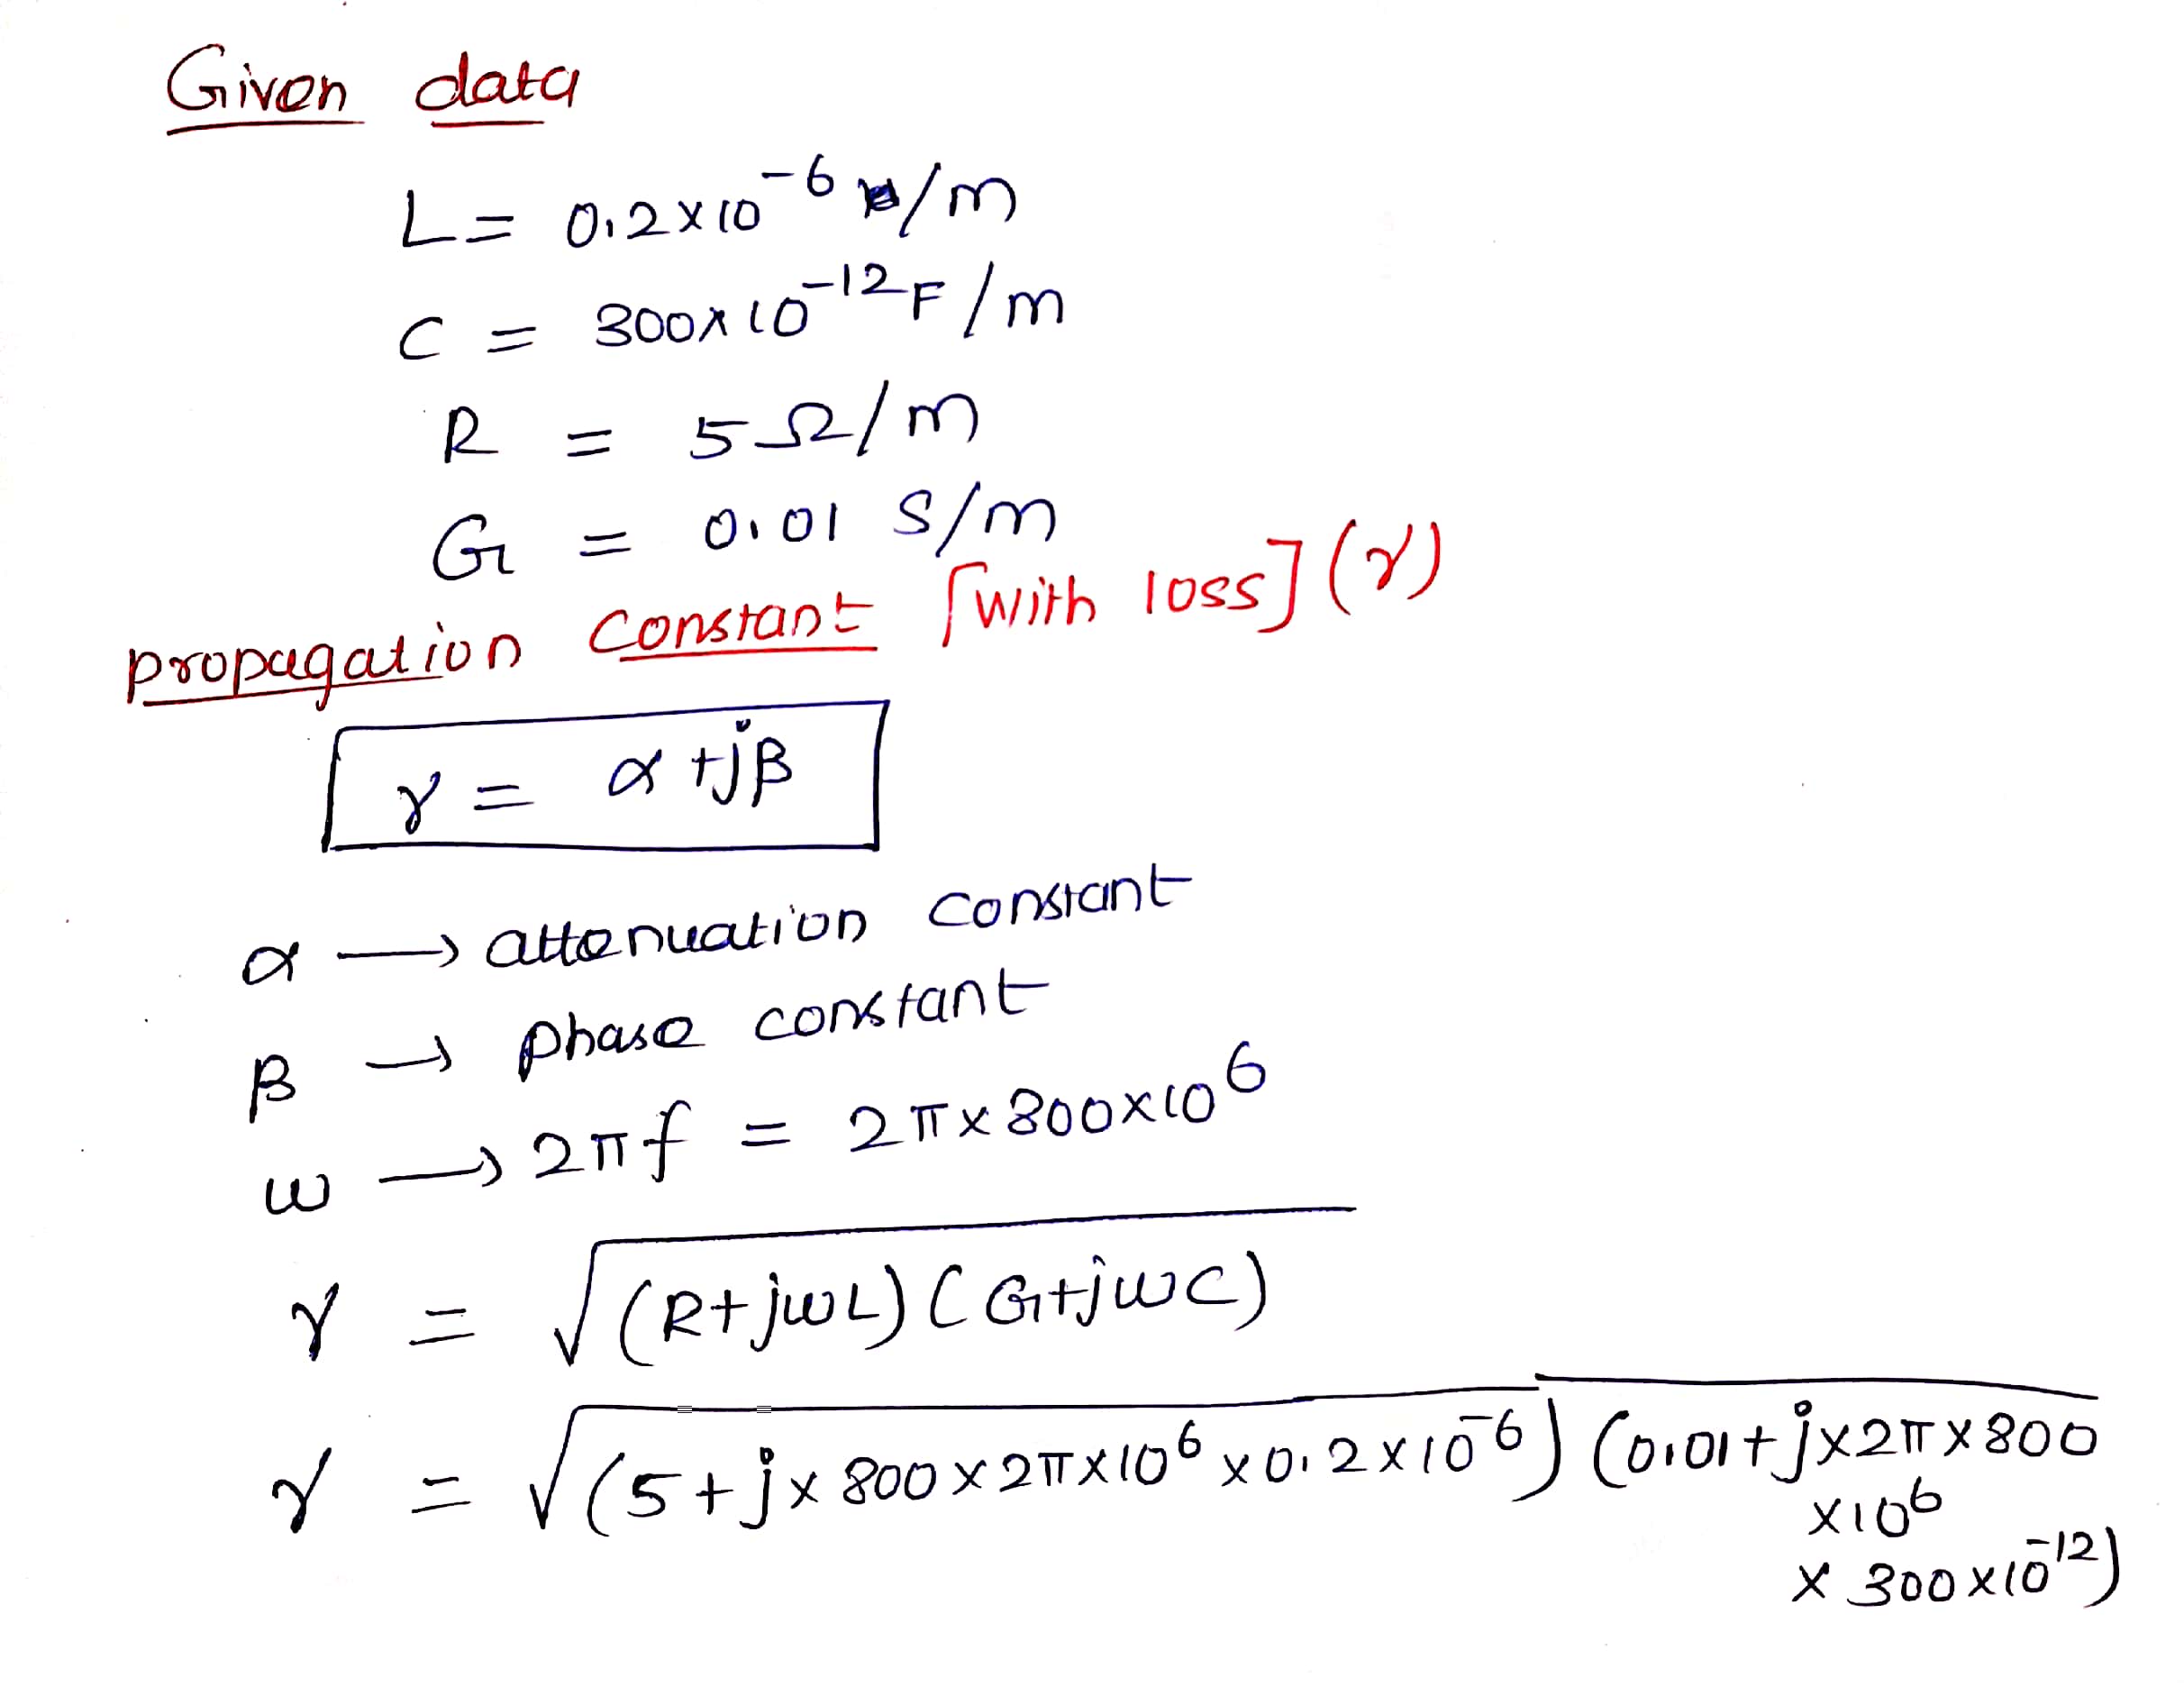 Given data
L = 0.2×10⁻⁶ H/m
C = 300×10⁻¹² F/m
R = 5Ω/m
G = 0.01 S/m
propagation constant [with loss] (γ)
γ = α+jβ
α → attenuation constant
β → phase constant
ω → 2πf = 2π×800×10⁶
γ = √(R+jωL)(G+jωC)
γ = √(5+j×800×2π×10⁶×0.2×10⁻⁶)(0.01+j×2π×800
×10⁶
×300×10⁻¹²)